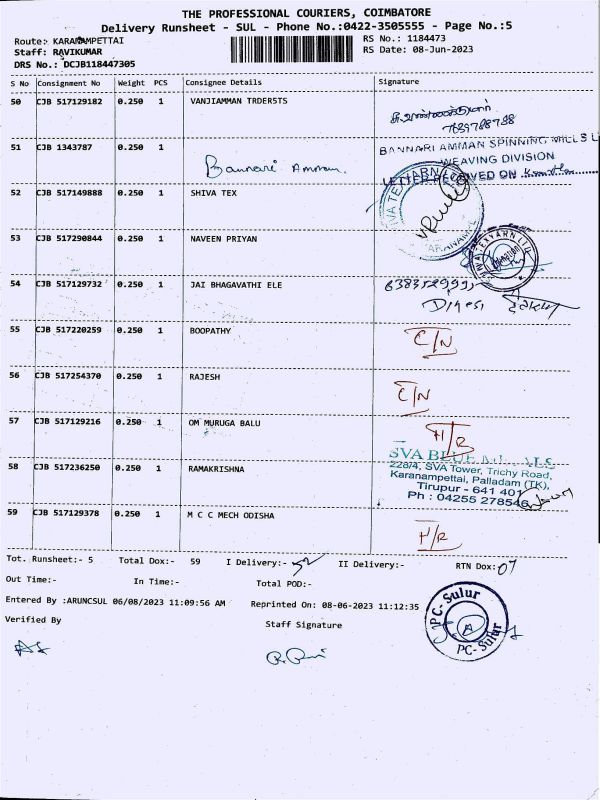 THE PROFESSIONAL COURIERS, COIMBATORE
Delivery Runsheet - SUL - Phone No.:0422-3505555 - Page No.:5
Route: KARANAMPETTAI RS No.: 1184473
Staff: RAVIKUMAR RS Date: 08-Jun-2023
DRS No.: DCJB118447305
S No Consignment No Weight PCS Consignee Details Signature
50 CJB 517129182 0.250 1 VANJIAMMAN TRDERSTS
51 CJB 1343787 0.250 1 Bannari Amman.
BANNARI AMMAN SPINNING MILLS L
WEAVING DIVISION
RECEIVED ON
52 CJB 517149888 0.250 1 SHIVA TEX
53 CJB 517290844 0.250 1 NAVEEN PRIYAN
54 CJB 517129732 0.250 1 JAI BHAGAVATHI ELE
55 CJB 517220259 0.250 1 BOOPATHY C/N
56 CJB 517254370 0.250 1 RAJESH C/N
57 CJB 517129216 0.250 1 OM MURUGA BALU H/R
SVA
58 CJB 517236250 0.250 1 RAMAKRISHNA
228/4, SVA Tower, Trichy Road,
Karanampettai, Palladam (TK),
Tirupur - 641 401
Ph : 04255 278546
59 CJB 517129378 0.250 1 M C C MECH ODISHA H/R
Tot. Runsheet:- 5 Total Dox:- 59 I Delivery:- 52 II Delivery:- RTN Dox: 07
Out Time:- In Time:- Total POD:-
Entered By :ARUNCSUL 06/08/2023 11:09:56 AM Reprinted On: 08-06-2023 11:12:35
Verified By Staff Signature
PC-Sulur
PC-Sulur